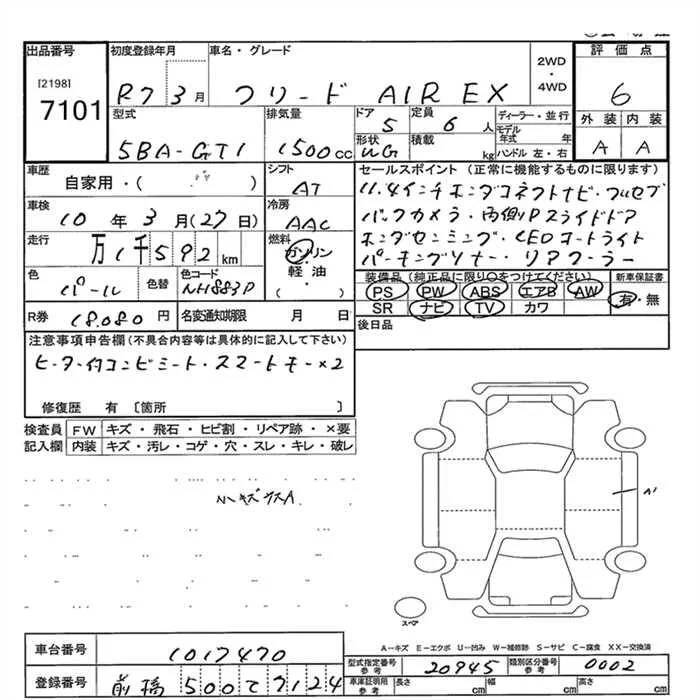 出品番号
[2198]
7101
初度登録年月
R7 3月
車名・グレード
フリード AIR EX
2WD
・
4WD
評価点
6
型式
5BA-GT1
排気量
1500cc
ドア
5
形状
WG
定員
6人
積載
kg
ディーラー・並行
モデル年式 年
ハンドル 左・右
外装 内装
A A
車歴
自家用・( )
シフト
AT
車検
10年3月(27日)
冷房
AAC
走行
万1千592km
燃料
ガソリン
軽油
( )
色
パール
色替
色コード
NH883P
R券 18,080円
名変通知期限 月 日
セールスポイント(正常に機能するものに限ります)
11.4インチホンダコネクトナビ・フルセグ
バックカメラ・両側Pスライドドア
ホンダセンシング・LEDコートライト
パーキングソナー・リアクーラー
装備品(純正品に限り○をつけてください)
PS PW ABS エアB AW
SR ナビ TV カワ
新車保証書
有・無
後日品
注意事項申告欄(不具合内容等は具体的に記入して下さい)
ヒーター付コンビシート・スマートキー×2
修復歴 有〔箇所 〕
検査員記入欄
FW キズ・飛石・ヒビ割・リペア跡・×要
内装 キズ・汚レ・コゲ・穴・スレ・キレ・破レ
小キズウスA
A1
スペア
A−キズ E−エクボ U−凹み W−補修跡 S−サビ C−腐食 XX−交換済
車台番号
1017470
登録番号
前橋 500 て 7124
型式指定番号
参考
20945
類別区分番号
参考
0002
車庫証明用
参考
長さ cm
幅 cm
高さ cm